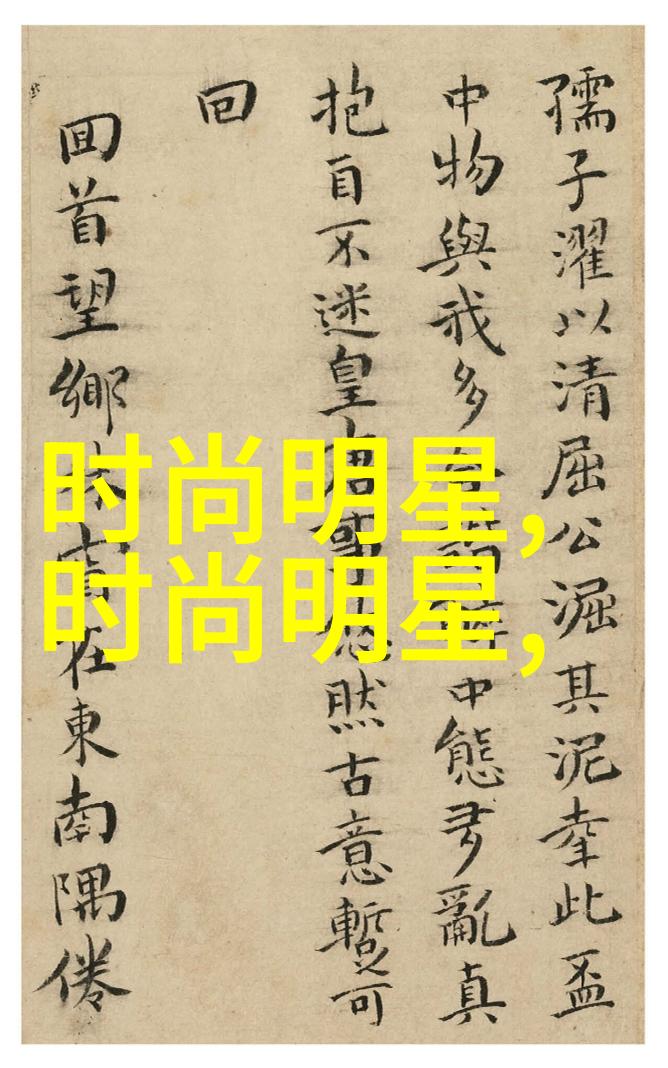 孺子濯以清屈公淈其泥此盃
中物與我多中態亂真
抱自不迷皇然古意暫可
回
回首望鄉在東南隅倦
时尚明星,
时尚明星,